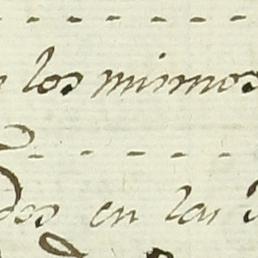 los mismos
dos en las